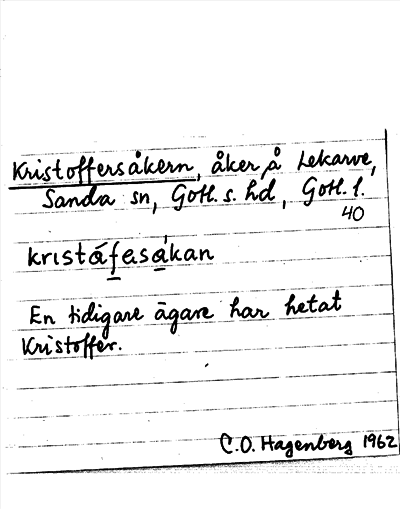 Kristoffersåkern, åker å Lekarve,
Sanda sn, Gotl. s. hd, Gotl. l.
40
kristáfasákan
En tidigare ägare har hetat
Kristoffer.
C.O. Hagenberg 1962